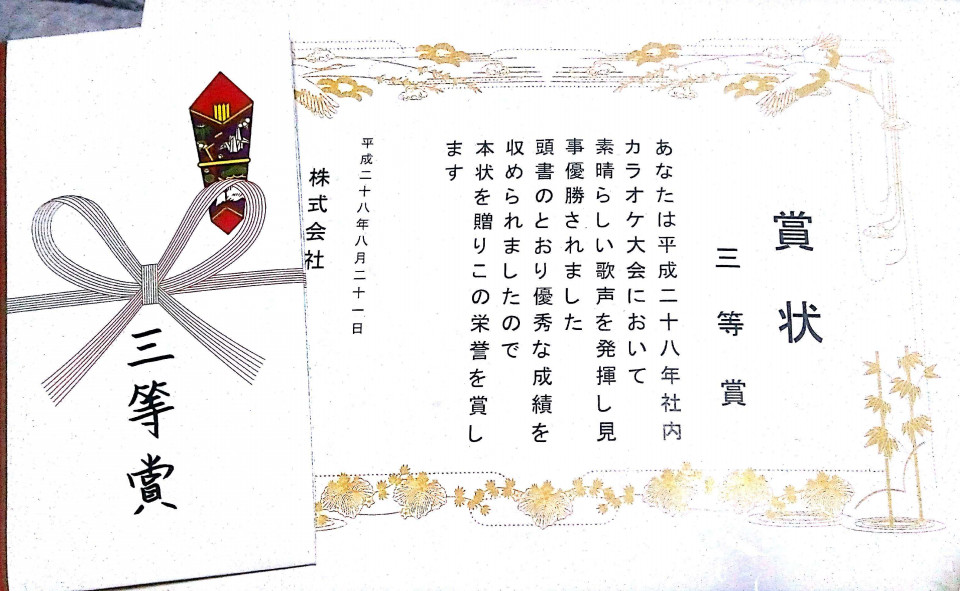 賞状
三等賞
あなたは平成二十八年社内
カラオケ大会において
素晴らしい歌声を発揮し見
事優勝されました
頭書のとおり優秀な成績を
収められましたので
本状を贈りこの栄誉を賞し
ます
平成二十八年八月二十一日
株式会社
三等賞